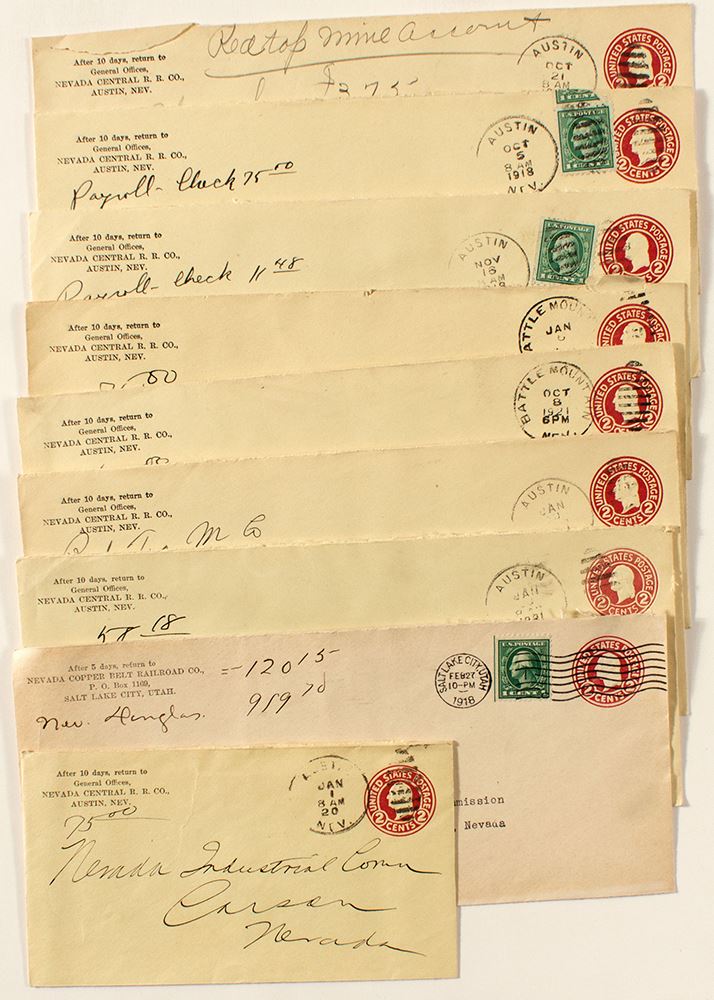 Redtop Mine Account
After 10 days, return to
General Offices,
NEVADA CENTRAL R. R. CO.,
AUSTIN, NEV.
AUSTIN
OCT
21
8 AM
UNITED STATES POSTAGE
After 10 days, return to
General Offices,
NEVADA CENTRAL R. R. CO.,
AUSTIN, NEV.
Payroll - Check 75 00
AUSTIN
OCT
5
8 AM
1918
NEV.
1 CENT
2 CENTS 2
After 10 days, return to
General Offices,
NEVADA CENTRAL R. R. CO.,
AUSTIN, NEV.
Payroll - Check 11 48
AUSTIN
NOV
16
AM
U.S. POSTAGE
1 CENT 1
UNITED STATES POSTAGE
2 CENTS 2
After 10 days, return to
General Offices,
NEVADA CENTRAL R. R. CO.,
AUSTIN, NEV.
BATTLE MOUN
JAN
After 10 days, return to
General Offices,
NEVADA CENTRAL R. R. CO.,
AUSTIN, NEV.
BATTLE MOUNTAIN
OCT
8
1921
6PM
NEV.
UNITED STATES POSTAGE
After 10 days, return to
General Offices,
NEVADA CENTRAL R. R. CO.,
AUSTIN, NEV.
M Co
AUSTIN
JAN
UNITED STATES POSTAGE
2 CENTS 2
After 10 days, return to
General Offices,
NEVADA CENTRAL R. R. CO.,
AUSTIN, NEV.
58 18
AUSTIN
JAN
UNITED STATES POSTAGE
2 CENTS 2
After 5 days, return to
NEVADA COPPER BELT RAILROAD CO.,
P. O. Box 1169,
SALT LAKE CITY, UTAH.
Nev. Douglas.
= -120 15
959 70
SALT LAKE CITY, UTAH
FEB 27
10-PM
1918
1 CENT 1
CENTS 2
mission
, Nevada
After 10 days, return to
General Offices,
NEVADA CENTRAL R. R. CO.,
AUSTIN, NEV.
75 00
JAN
1
8 AM
20
NEV.
UNITED STATES POSTAGE
2 CENTS 2
Nevada Industrial Comn
Carson
Nevada